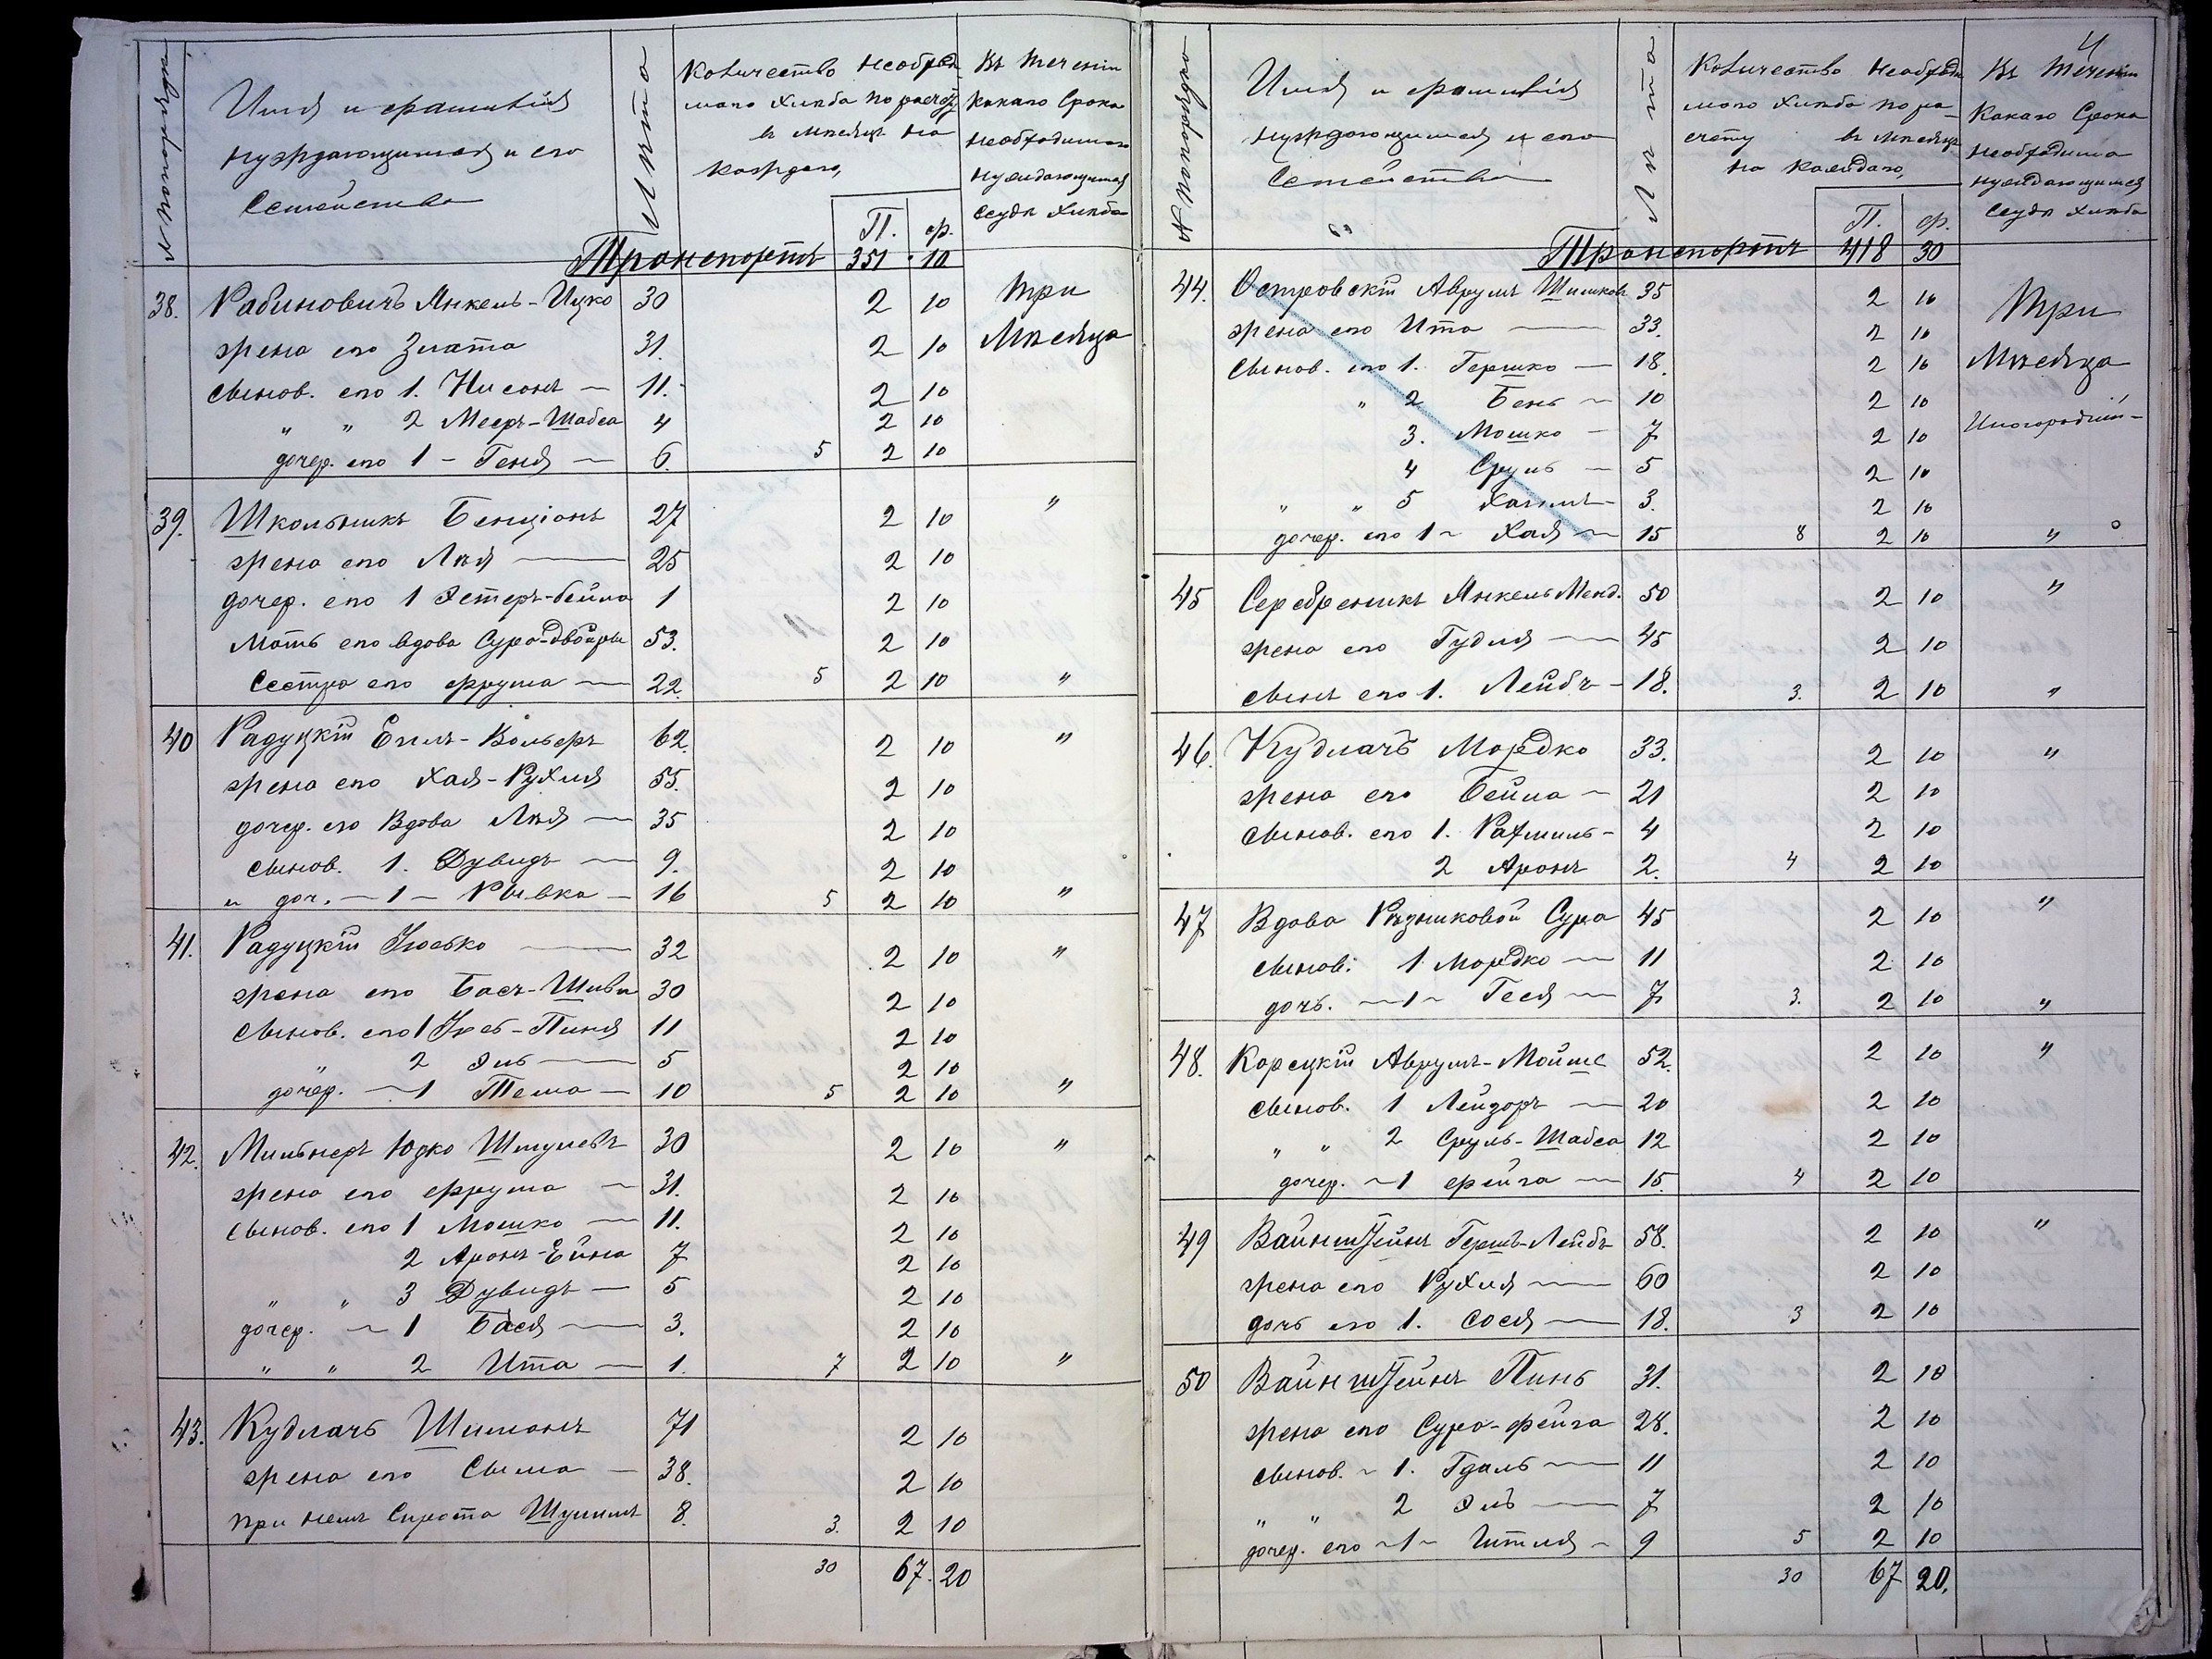 № по порядку
Имя и фамилія
нуждающимся и его
Семейства
Лѣта
Количество необходи
маго хлѣба по расчету
въ мѣсяцъ на
каждаго,
П. ф.
Въ теченіи
какаго срока
необходимо
нуждающимся
ссуда хлѣба
Транспортъ 351 10
38. Рабиновичъ Янкель-Ицко 30 2 10 три
жена его Злата 31. 2 10 Мѣсяца
сынов. его 1. Нисонъ — 11. 2 10
„ „ 2 Мееръ-Шабса 4 2 10
дочер. его 1 — Геня — 6. 5 2 10
39. Школьникъ Бенціонъ 27 2 10 „
жена его Лѣя — 25 2 10
дочер. его 1 Эстеръ-бейла 1 2 10
Мать его вдова Сура-двойры 53. 2 10
Сестра его фрума — 22. 5 2 10 „
40 Радуцкій Ехилъ-Вольфъ 62. 2 10 „
жена его Хая-Рухля 55. 2 10
дочер. его Вдова Лѣя — 35 2 10
сынов. 1. Дувидъ — 9. 2 10
и доч. — 1 — Рывка — 16 5 2 10 „
41. Радуцкій Іосько — 32 2 10 „
жена его Бася-Шива 30 2 10
сынов. его 1 Іось-Пиня 11 2 10
„ 2 Эль — 5 2 10
дочер. — 1 Тема — 10 5 2 10 „
42. Мильнеръ Юзко Шмулевъ 30 2 10 „
жена его фрума — 31. 2 10
сынов. его 1 Мошко — 11. 2 10
2 Аронъ-Ейна 7 2 10
„ „ 3 Дувидъ — 5 2 10
дочер. — 1 Бася — 3. 2 10
„ „ 2 Ита — 1. 7 2 10 „
43. Кудлачъ Шимонъ 71 2 10
жена его Сыма — 38. 2 10
при немъ Сирота Шулимъ 8. 3. 2 10
30 67. 20
4
№ по порядку
Имя и фамилія
нуждающимся и его
Семейства
Лѣта
Количество необходи
маго хлѣба по ра-
счету въ мѣсяцъ
на каждаго,
П. ф.
Въ теченіи
какаго срока
необходима
нуждающимся
ссуда хлѣба
Транспортъ 418 30
44. Островскій Аврумъ Шимков 35 2 10 Три
жена его Ита — 33. 2 10
сынов. его 1. Гершко — 18. 2 10 Мѣсяца
„ 2 Бень — 10 2 10 Иногродній —
3. Мошко — 7 2 10
4 Сруль — 5 2 10
„ „ 5 Хаимъ — 3. 2 10
дочер. его 1 — Хая — 15 8 2 10 „
45 Серебреникъ Янкель Менд. 50 2 10 „
жена его Гудля — 45 2 10
сынъ его 1. Лейбъ — 18. 3. 2 10 „
46. Кудлачъ Мордко 33. 2 10 „
жена его Бейла — 21 2 10
сынов. его 1. Рахмиль — 4 2 10
2 Аронъ 2. 4 2 10
47 Вдова Рѣзниковой Сура 45 2 10 „
сынов: 1 Мордко — 11 2 10
дочь. — 1 — Геся — 7 3. 2 10 „
48. Корецкій Аврумъ-Мойше 52. 2 10 „
сынов. 1 Лейзоръ — 20 2 10
„ „ 2 Сруль-Шабса 12 2 10
дочер. — 1 фейга — 15. 4 2 10
49 Вайнштейнъ Гершъ-Лейбъ 58. 2 10 „
жена его Рухля — 60 2 10
дочь его 1. Сося — 18. 3 2 10
50 Вайнштейнъ Пинь 31. 2 10
жена его Сура-фейга 28. 2 10
сынов. — 1. Гдаль — 11 2 10
„ „ 2 Эль — 7 2 10
дочер. его — 1 — Гитля — 9 5 2 10
30 67 20.